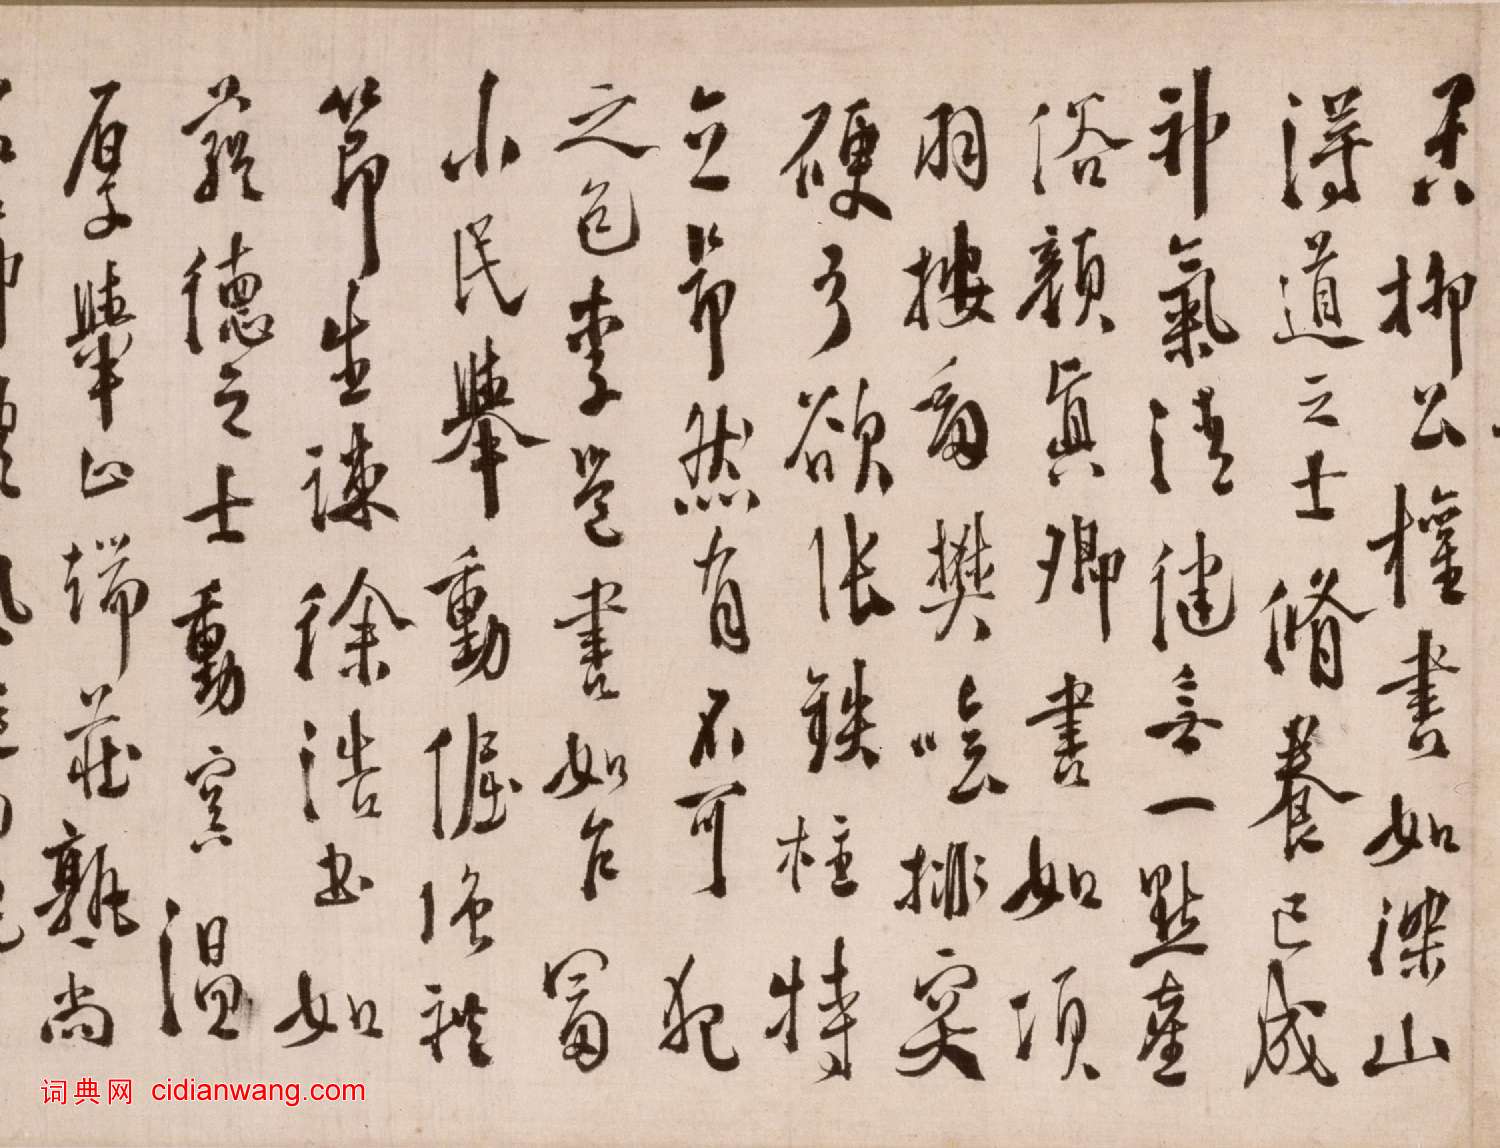 異柳公權書如深山
得道之士脩養已成
神氣清健無一點塵
俗顏真卿書如項
羽按劒樊噲排突
硬弓欲張鐵柱特
立昂然有不可犯
之色李邕書如乍富
小民舉動倔強禮
節生疎徐浩書如
蘊德之士動容溫
厚舉止端莊熟尚
词典网 cidianwang.com